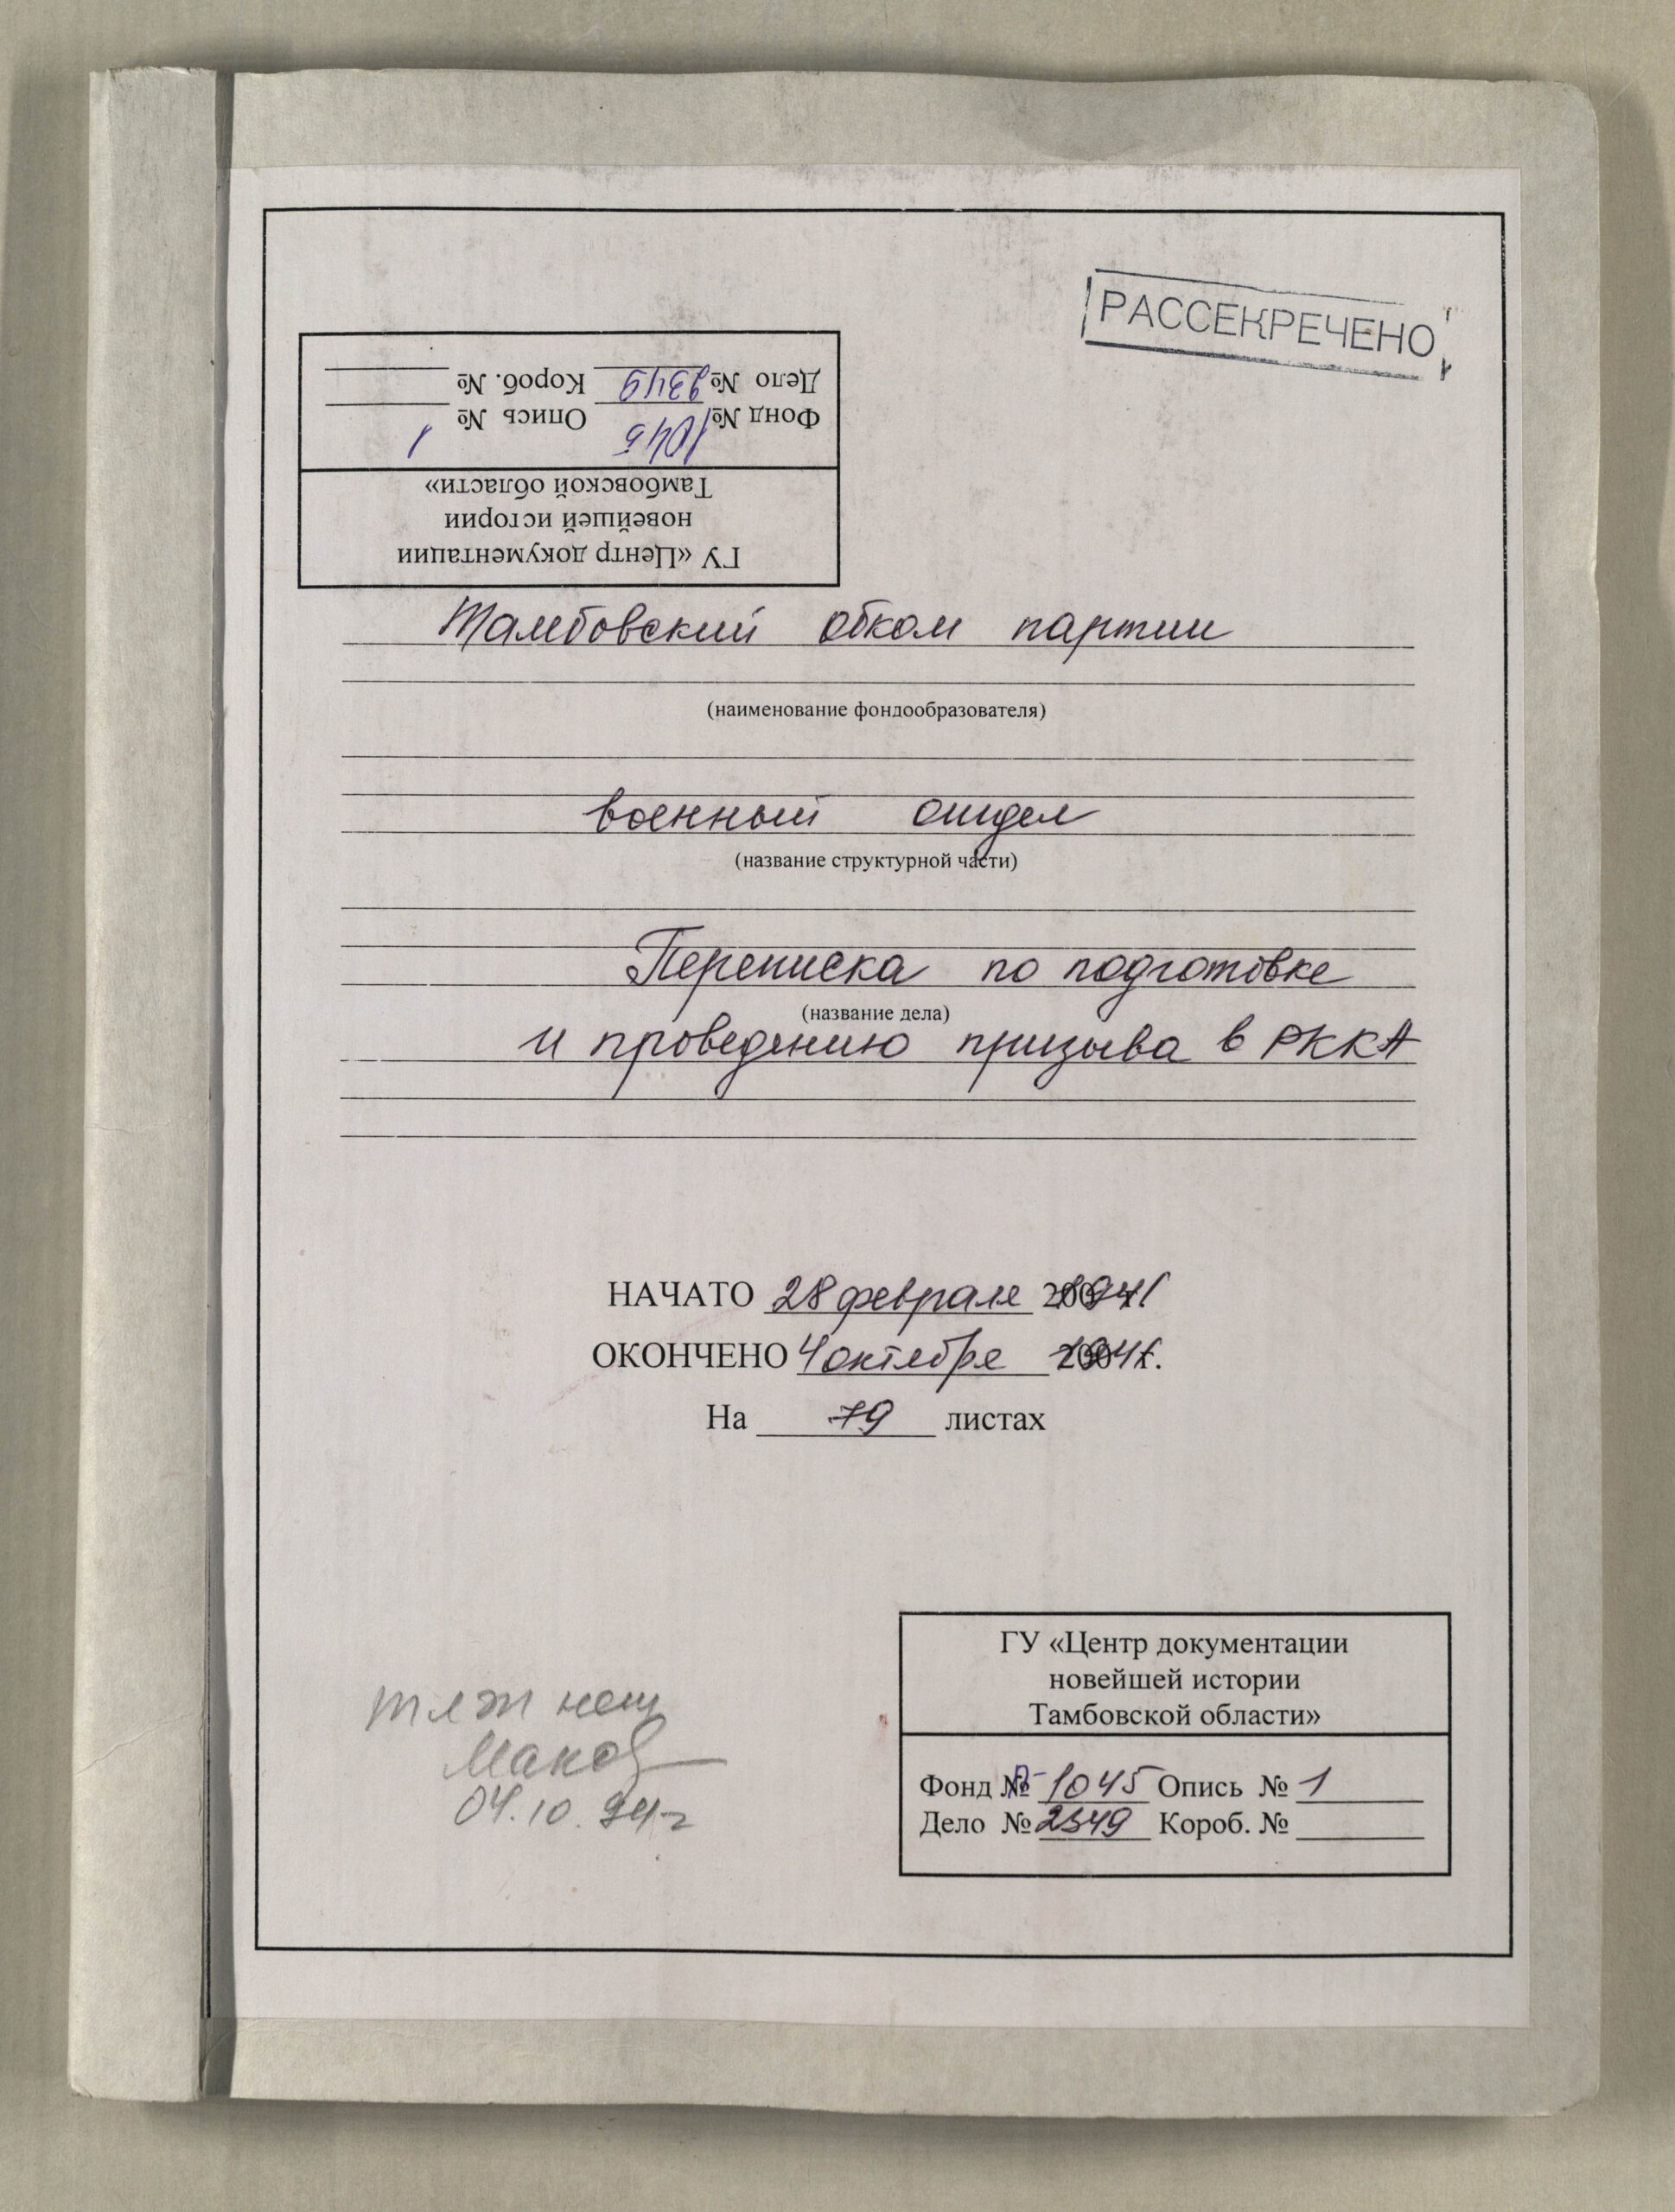 РАССЕКРЕЧЕНО
ГУ «Центр документации
новейшей истории
Тамбовской области»
Фонд № 1045 Опись № 1
Дело № 2349 Короб. №
Тамбовский обком партии
(наименование фондообразователя)
военный отдел
(название структурной части)
Переписка по подготовке
(название дела)
и проведению призыва в РККА
НАЧАТО 28 февраля 1941
ОКОНЧЕНО 4 октября 1941г.
На 79 листах
ГУ «Центр документации
новейшей истории
Тамбовской области»
Фонд № П-1045 Опись № 1
Дело № 2349 Короб. №
04.10.94г